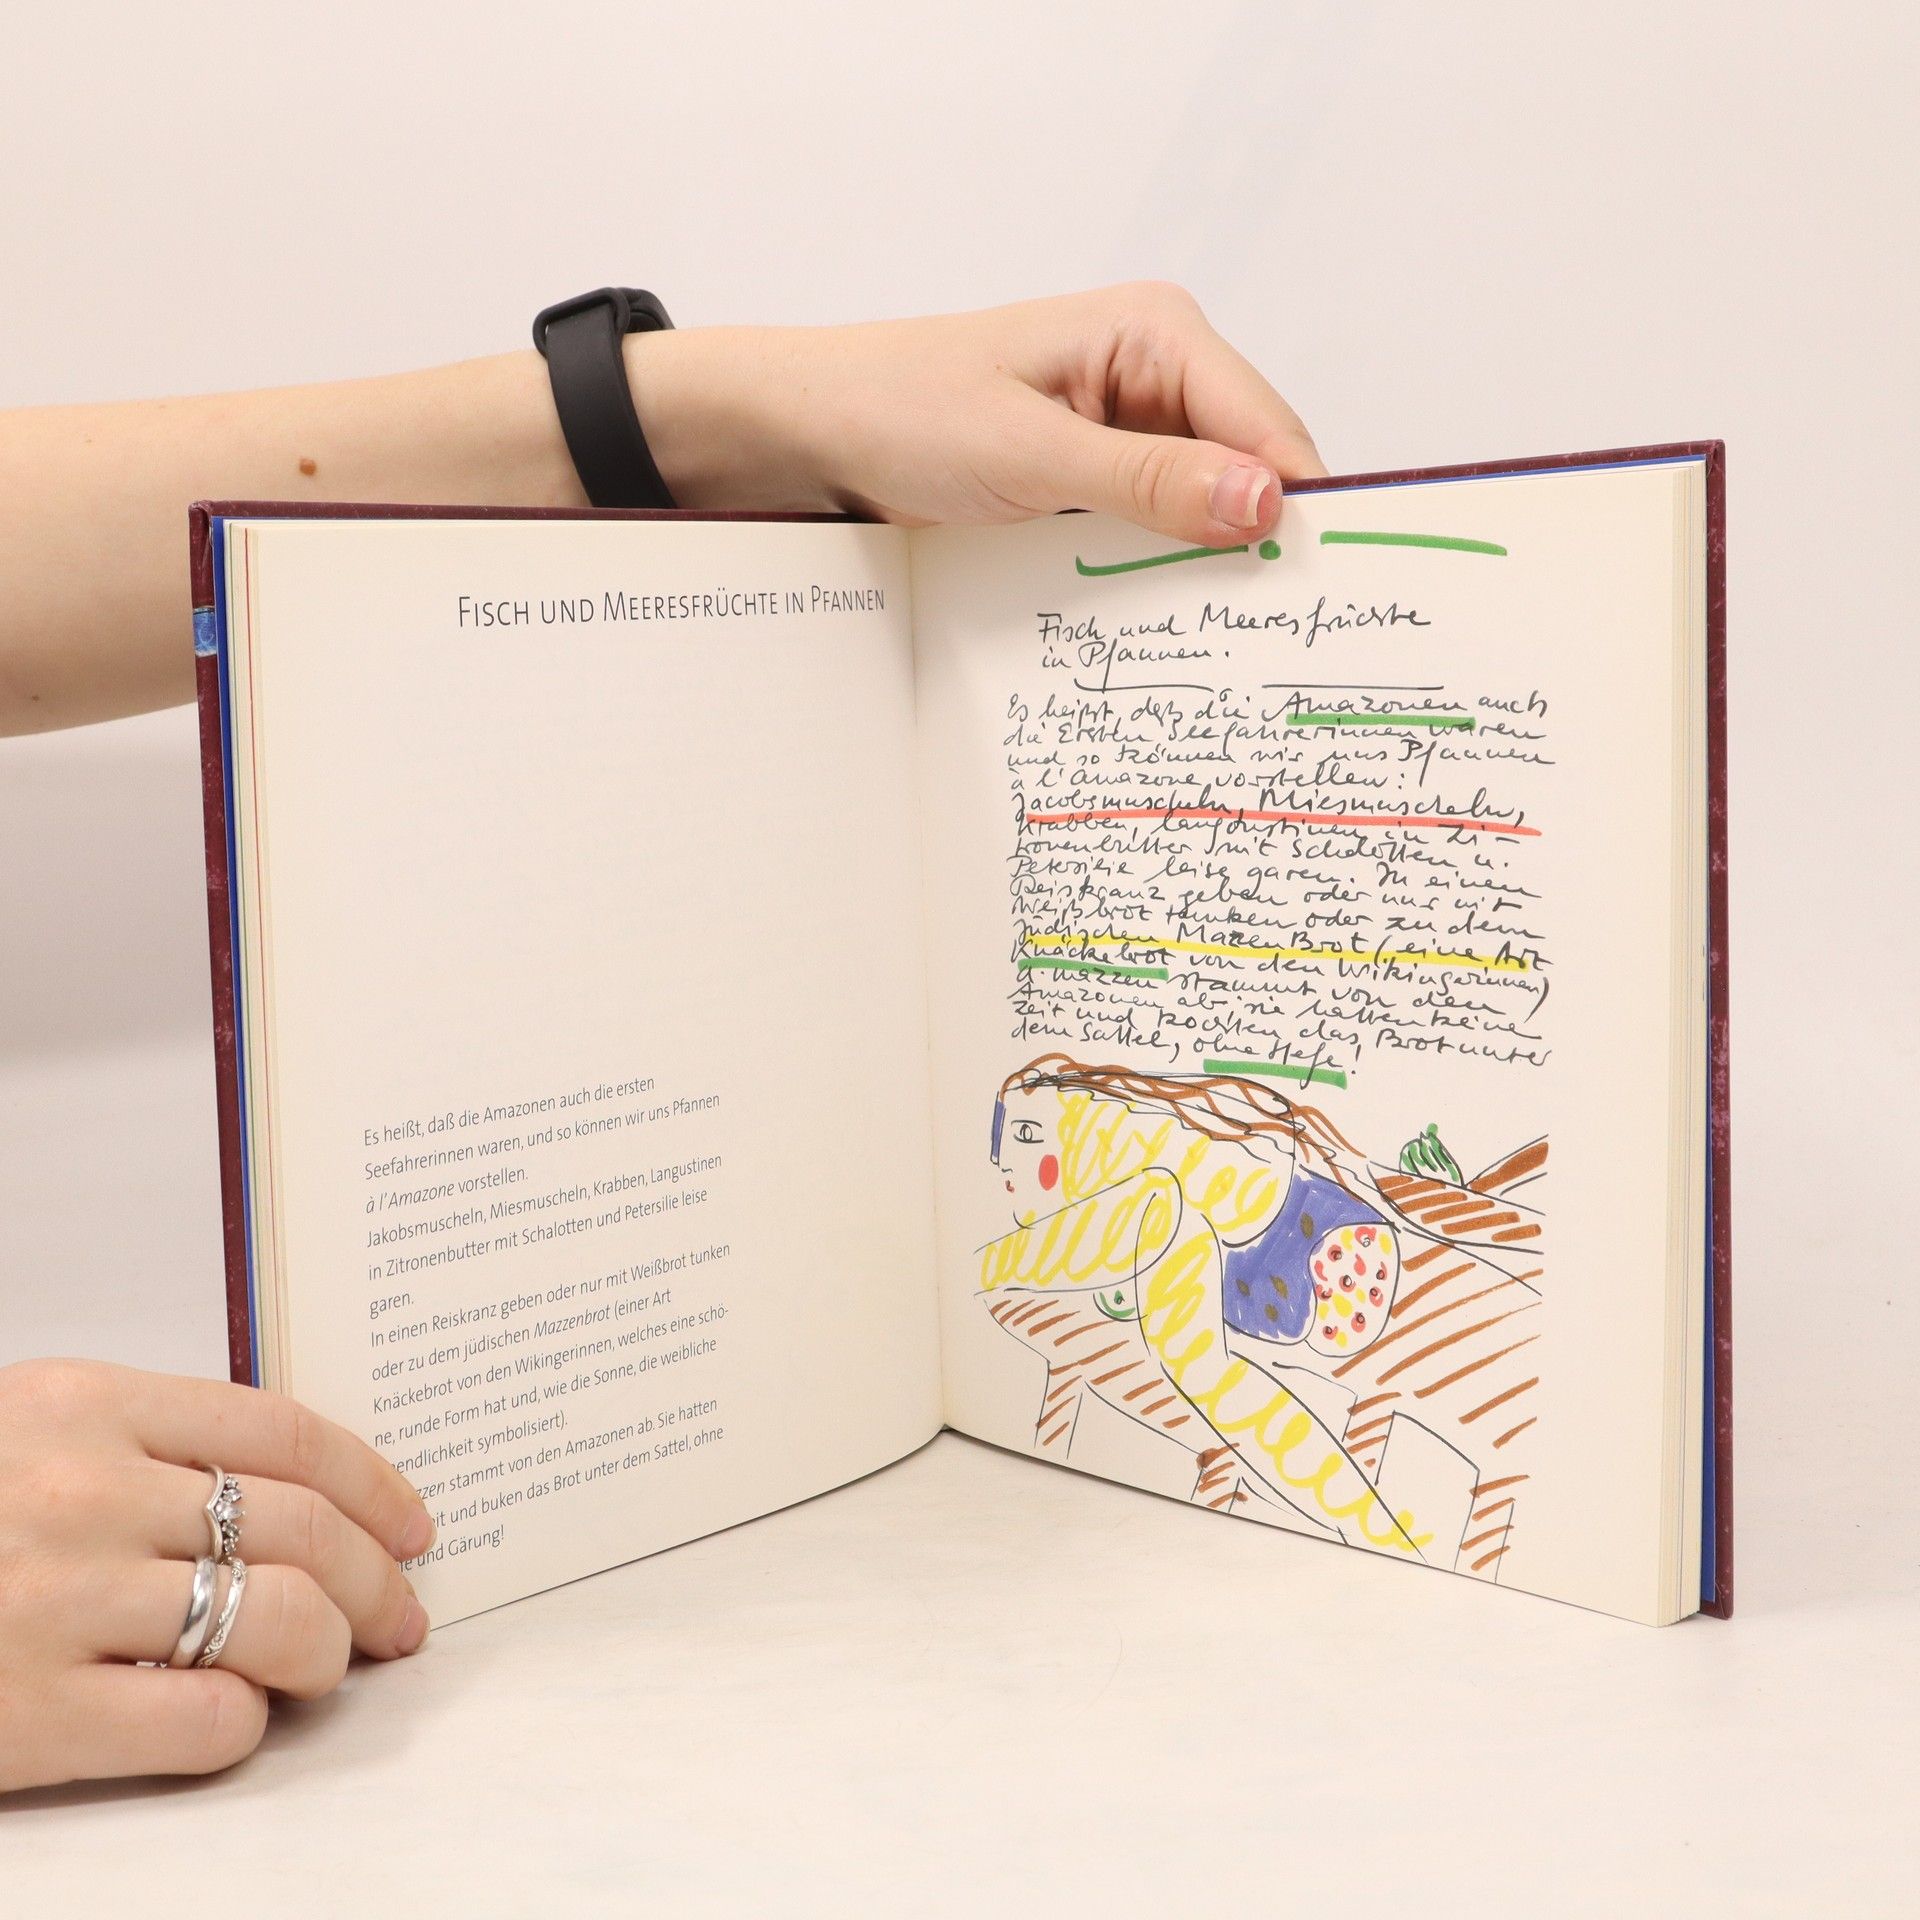 FISCH UND MEERESFRÜCHTE IN PFANNEN
Es heißt, daß die Amazonen auch die ersten
Seefahrerinnen waren, und so können wir uns Pfannen
à l'Amazone vorstellen.
Jakobsmuscheln, Miesmuscheln, Krabben, Langustinen
in Zitronenbutter mit Schalotten und Petersilie leise
garen.
In einen Reiskranz geben oder nur mit Weißbrot tunken
oder zu dem jüdischen Mazzenbrot (einer Art
Knäckebrot von den Wikingerinnen, welches eine schö-
ne, runde Form hat und, wie die Sonne, die weibliche
endlichkeit symbolisiert).
zzen stammt von den Amazonen ab. Sie hatten
eit und buken das Brot unter dem Sattel, ohne
fe und Gärung!
Fisch und Meeresfrüchte
in Pfannen.
Es heißt, daß die Amazonen auch
die Ersten Seefahrerinnen waren
und so können wir uns Pfannen
à l'Amazone vorstellen:
Jacobsmuscheln, Miesmuscheln,
Krabben, Langustinen in Zi-
tronenbutter mit Schalotten u.
Petersilie leise garen. In einen
Reiskranz geben oder nur mit
Weißbrot tunken oder zu dem
jüdischen Mazen Brot (eine Art
Knäckebrot von den Wikingerinnen)
d. mazzen stammt von den
Amazonen ab, sie hatten keine
Zeit und kochten das Brot unter
dem Sattel, ohne Hefe!